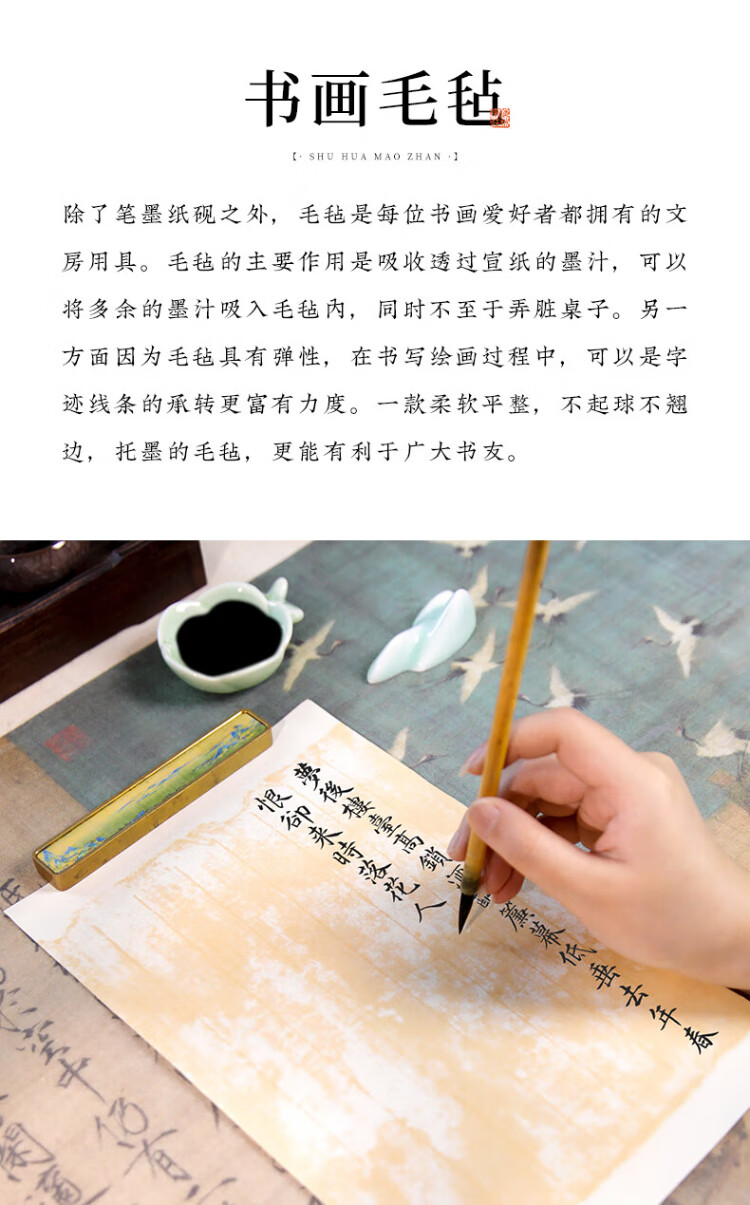 书画毛毡
【· SHU HUA MAO ZHAN ·】
除了笔墨纸砚之外，毛毡是每位书画爱好者都拥有的文
房用具。毛毡的主要作用是吸收透过宣纸的墨汁，可以
将多余的墨汁吸入毛毡内，同时不至于弄脏桌子。另一
方面因为毛毡具有弹性，在书写绘画过程中，可以是字
迹线条的承转更富有力度。一款柔软平整，不起球不翘
边，托墨的毛毡，更能有利于广大书友。
夢後樓臺高鎖酒簾幕低垂去年春
恨卻来時落花人